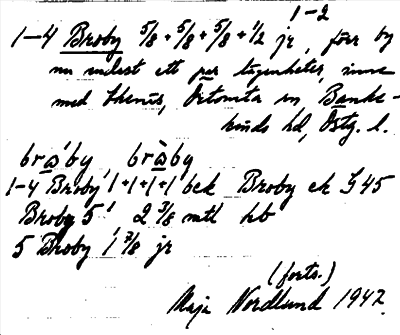 1-2
1-4 Broby 5/8 + 5/8 + 5/8 + 1/2 jr, förr by
nu endast ett par lägenheter, inne
med Ekenäs, Örtomta sn, Banke-
kinds hd, Östg. l.
bro´by bro`by
1-4 Broby 1+1+1+1 bek Broby ek G45
Broby 5 2 3/8 mtl hb
5 Broby 1 7/8 jr
(forts.)
Maja Nordlund 1947.